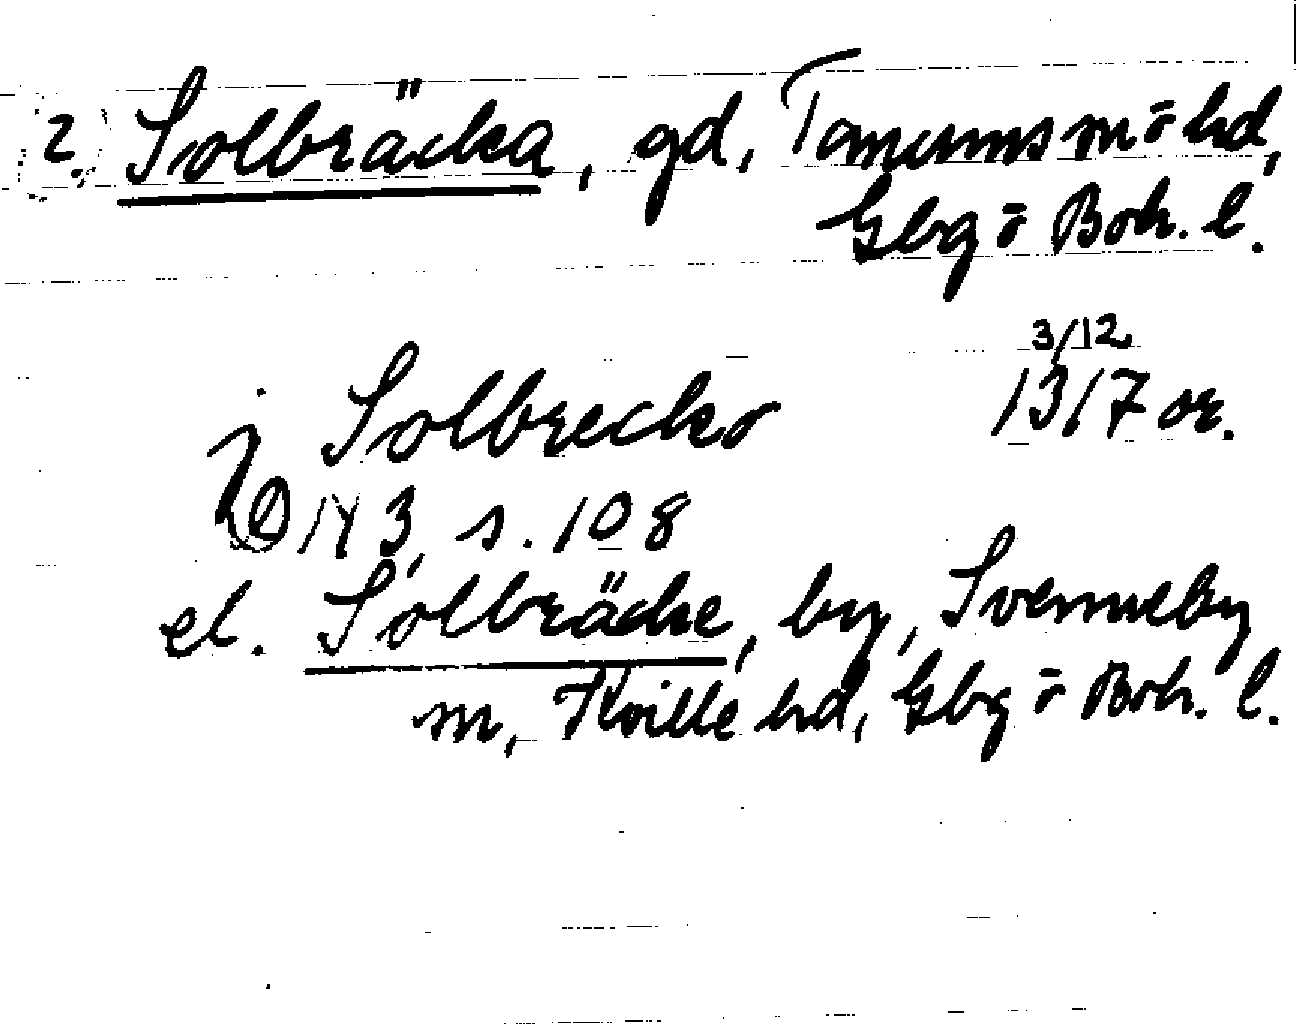 2. Solbräcka, gd, Tanums sn o hd,
Gbg o Boh. l.
3/12
j Solbrecko 1317 or.
DN 3, s. 108
el. Solbräcke, by, Svenneby
sn, Kville hd, Gbg o Boh. l.